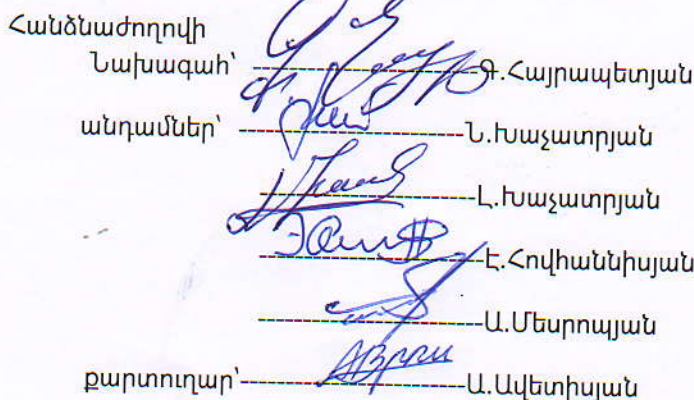 Հանձնաժողովի
Նախագահ՝ ---------------------------Գ.Հայրապետյան
անդամներ՝ ---------------------------Ն.Խաչատրյան
---------------------------Լ.Խաչատրյան
---------------------------Է.Հովհաննիսյան
---------------------------Ա.Մեսրոպյան
քարտուղար՝---------------------------Ա.Ավետիսյան